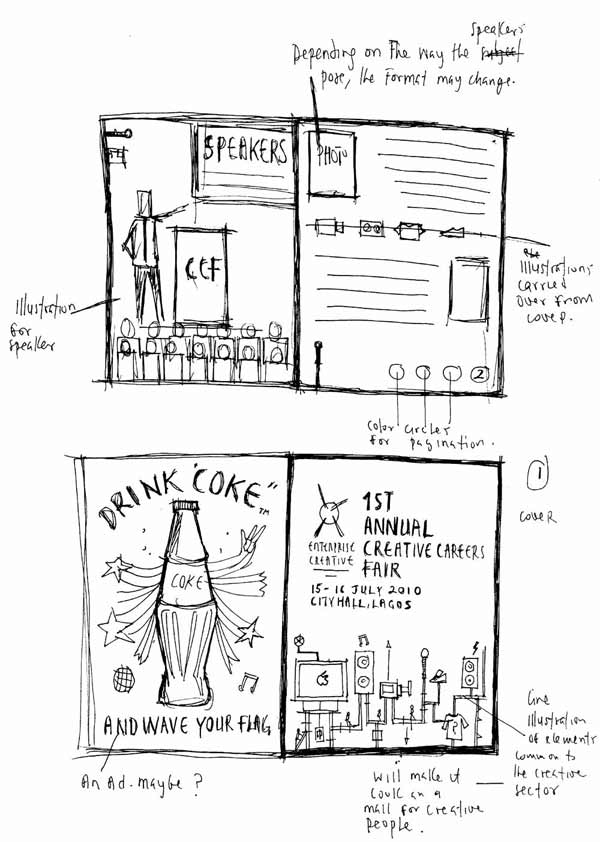 Speakers
Depending on The way the subject
pose, the Format may change.
SPEAKERS
PHOTO
CCF
Illustration
for
speaker
the
Illustrations
carried
over from
cover.
2
color circles
for pagination.
DRINK "COKE" TM
COKE
AND WAVE YOUR FLAG
An Ad. maybe ?
1
cover
1ST
ANNUAL
CREATIVE CAREERS
FAIR
ENTERPRISE
CREATIVE
15-16 JULY 2010
CITY HALL, LAGOS
?
Line
Illustration
of elements
common to
the creative
sector
Will make it
look like a
mall for creative
people.